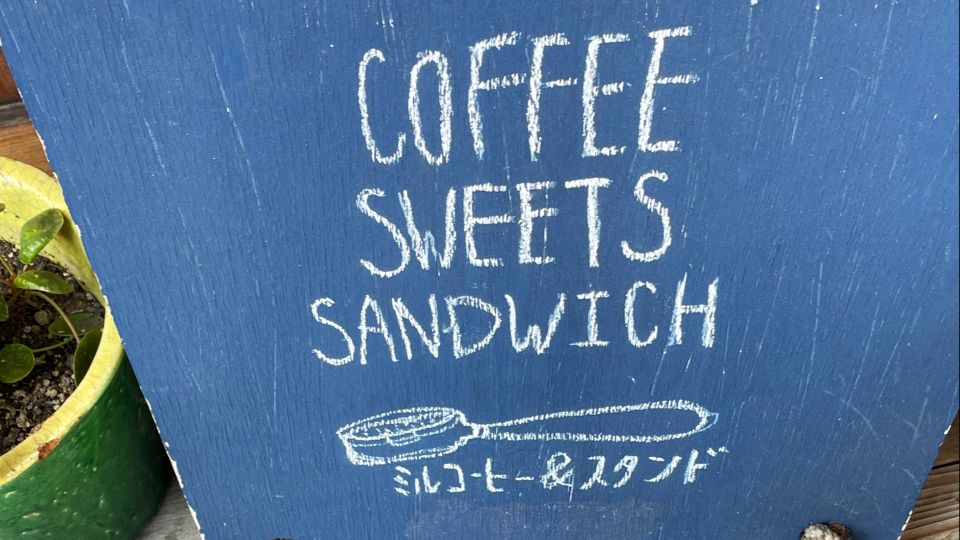 COFFEE
SWEETS
SANDWICH
ミルコーヒー&スタンド